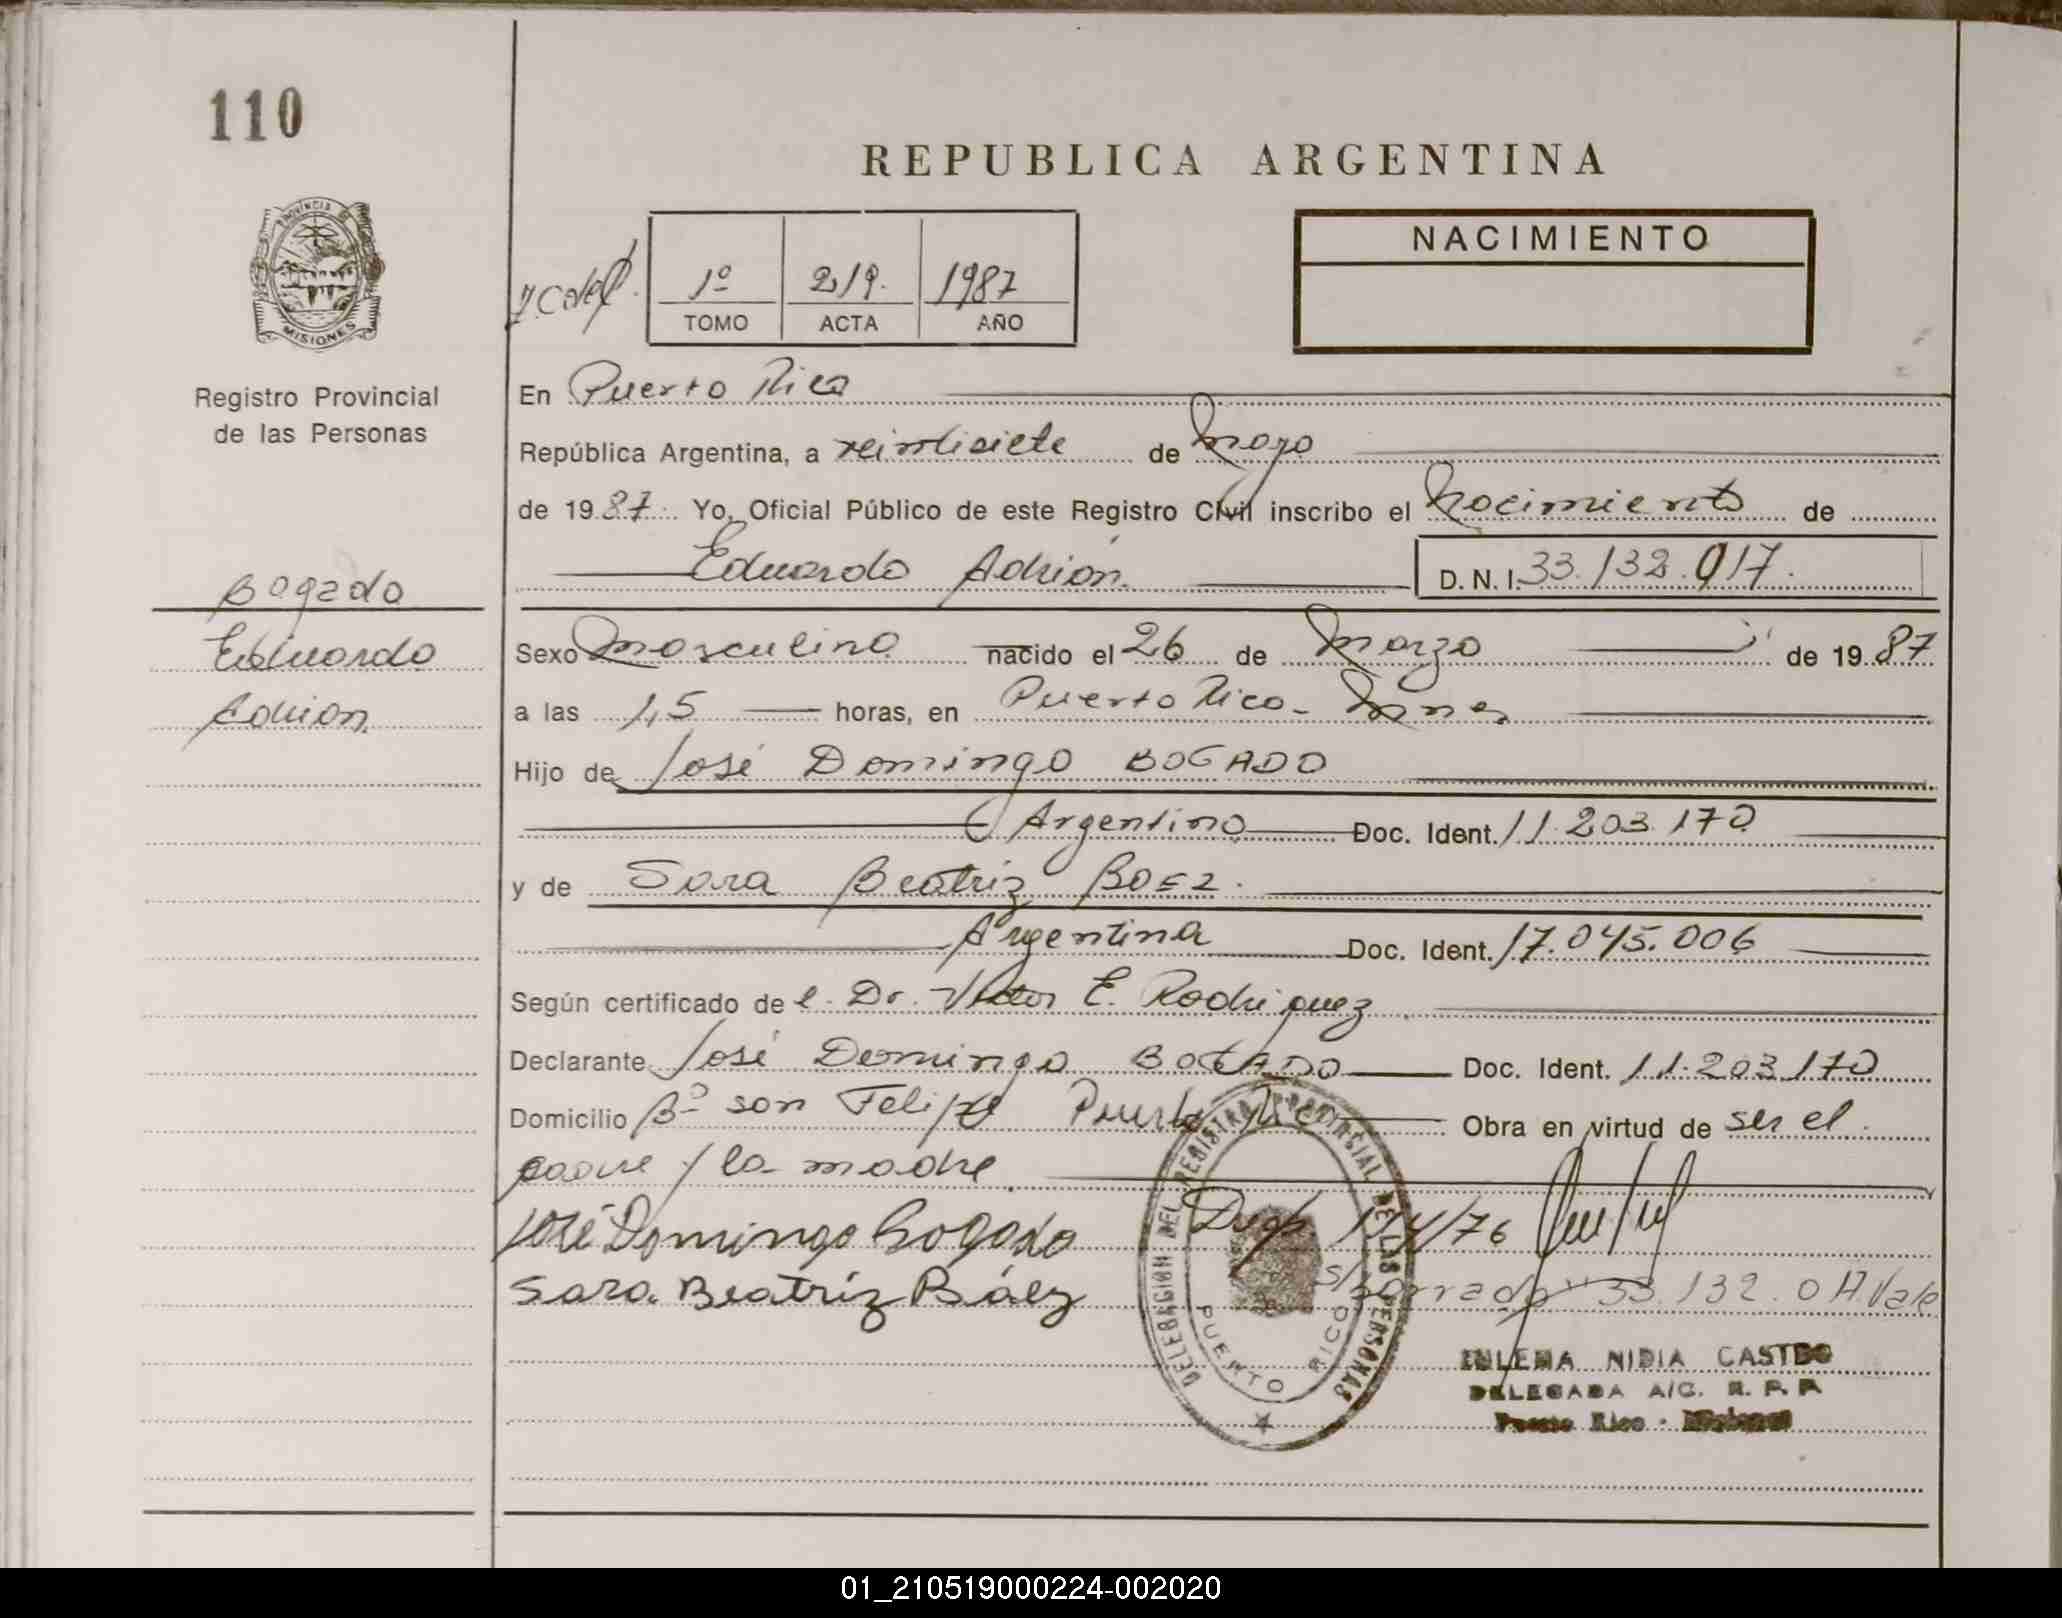 110
REPUBLICA ARGENTINA
PROVINCIA DE
MISIONES
Registro Provincial
de las Personas
1º 219. 1987
TOMO ACTA AÑO
NACIMIENTO
En Puerto Rico
República Argentina, a veintisiete de Mayo
de 1987. Yo, Oficial Público de este Registro Civil inscribo el Nacimiento de
Eduardo Adrián. D. N. I. 33.132.017.
Bogado
Eduardo
Adrián
Sexo Masculino nacido el 26 de Marzo de 1987
a las 15 horas, en Puerto Rico - Mnes
Hijo de José Domingo BOGADO
Argentino Doc. Ident. 11.203.170
y de Sara Beatriz BAEZ.
Argentina Doc. Ident. 17.045.006
Según certificado del Dr. Victor E. Rodriguez
Declarante José Domingo BOGADO Doc. Ident. 11.203.170
Domicilio Bº San Felipe Puerto Rico Obra en virtud de ser el
padre y la madre.
José Domingo Bogado
Sara Beatríz Báez
S/borrado "33.132.017. Vale
DELEGACION DEL REGISTRO PROVINCIAL DE LAS PERSONAS
PUERTO RICO
NIDIA CASTRO
DELEGADA A/C. R. P. P.
Puerto Rico - Misiones
01_210519000224-002020